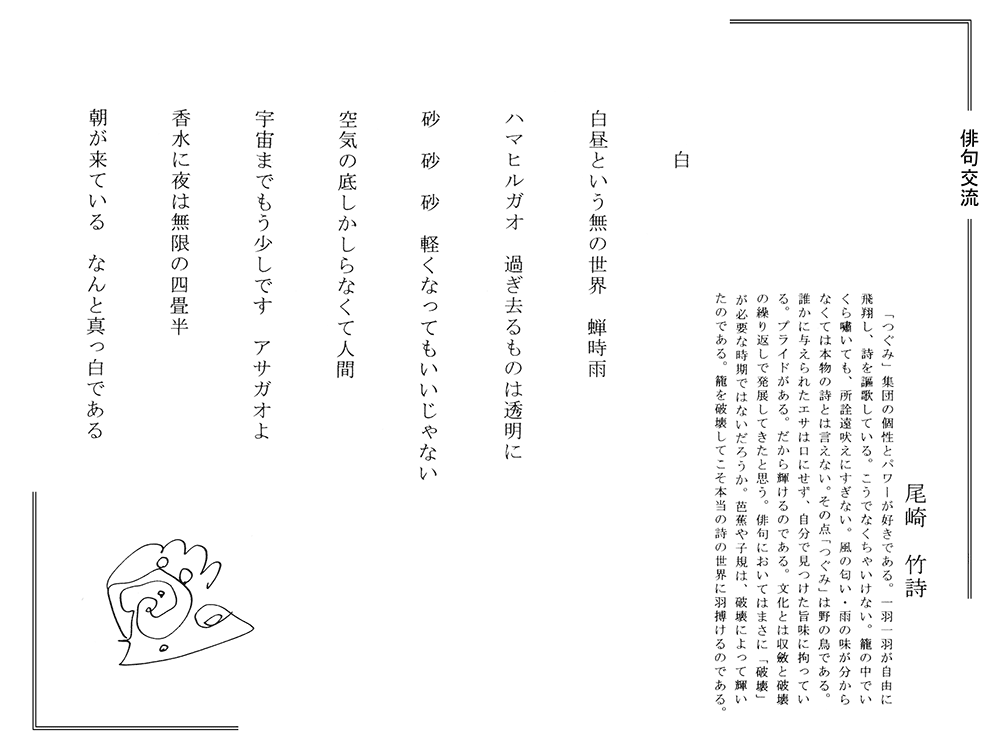 俳句交流
尾崎　竹詩
「つぐみ」集団の個性とパワーが好きである。一羽一羽が自由に
飛翔し、詩を謳歌している。こうでなくちゃいけない。籠の中でい
くら囀いても、所詮遠吠えにすぎない。風の匂い・雨の味が分から
なくては本物の詩とは言えない。その点「つぐみ」は野の鳥である。
誰かに与えられたエサは口にせず、自分で見つけた旨味に拘ってい
る。プライドがある。だから輝けるのである。文化とは収斂と破壊
の繰り返しで発展してきたと思う。俳句においてはまさに「破壊」
が必要な時期ではないだろうか。芭蕉や子規は、破壊によって輝い
たのである。籠を破壊してこそ本当の詩の世界に羽搏けるのである。
白
白昼という無の世界　蝉時雨
ハマヒルガオ　過ぎ去るものは透明に
砂　砂　砂　軽くなってもいいじゃない
空気の底しかしらなくて人間
宇宙までもう少しです　アサガオよ
香水に夜は無限の四畳半
朝が来ている　なんと真っ白である